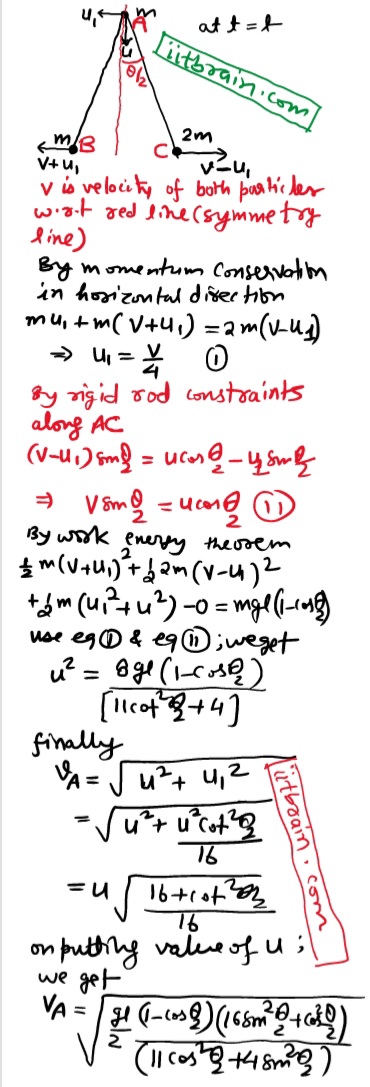 u₁ m at t = t
A
u
θ/2
iitbrain.com
m B C 2m
v+u₁ v-u₁
v is velocity of both particles
w.r.t red line (symmetry
line)
By momentum conservation
in horizontal direction
mu₁ + m(v+u₁) = 2m(v-u₁)
⇒ u₁ = v/4 ①
By rigid rod constraints
along AC
(v-u₁) sin θ/2 = u cos θ/2 - u₁ sin θ/2
⇒ v sin θ/2 = u cos θ/2 (ii)
By work energy theorem
½ m(v+u₁)² + ½ 2m(v-u₁)²
+ ½ m(u₁²+u²) - 0 = mgl(1-cos θ/2)
use eq ① & eq (ii); we get
u² = 8gl(1-cos θ/2) / [11cot² θ/2 + 4]
finally
v_A = √(u² + u₁²)
= √(u² + u² cot² θ/2 / 16)
= u √((16 + cot² θ/2) / 16)
iitbrain.com
on putting value of u ;
we get
V_A = √(gl/2 (1-cos θ/2)(16 sin² θ/2 + cos² θ/2) / (11 cos² θ/2 + 4 sin² θ/2))